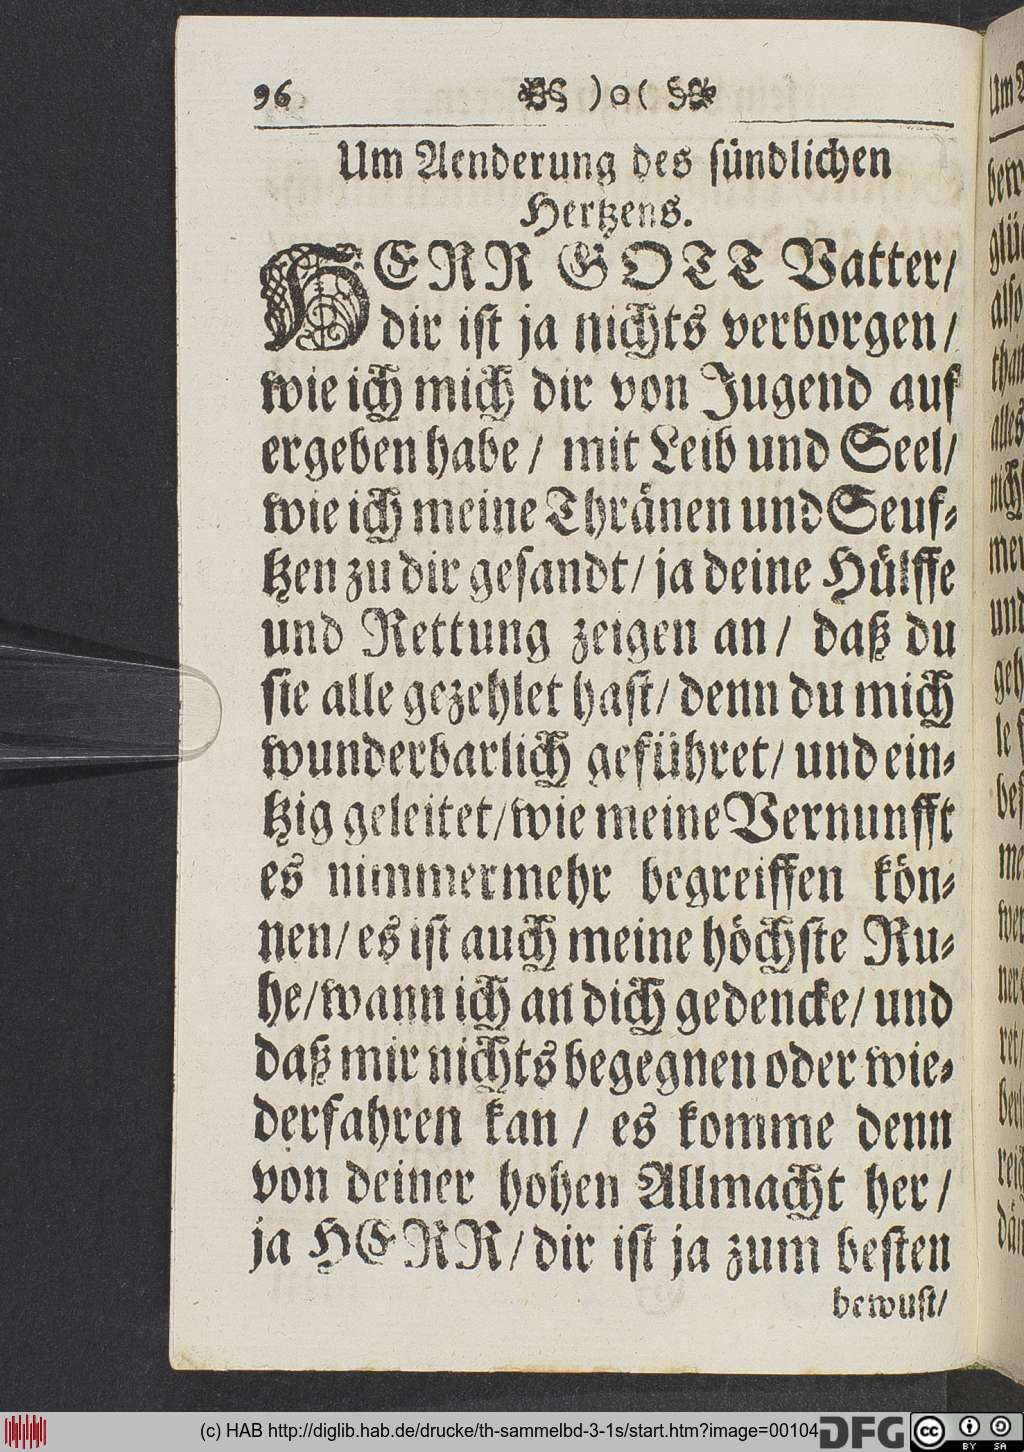 96 )o(
Um Aenderung des sündlichen
Hertzens.
HERR GOTT Vatter/
dir ist ja nichts verborgen/
wie ich mich dir von Jugend auf
ergeben habe/ mit Leib und Seel/
wie ich meine Thränen und Seuf-
tzen zu dir gesandt/ ja deine Hülffe
und Rettung zeigen an/ daß du
sie alle gezehlet hast/ denn du mich
wunderbarlich geführet/ und ein-
tzig geleitet/ wie meine Vernunfft
es nimmermehr begreiffen kön-
nen/ es ist auch meine höchste Ru-
he/ wann ich an dich gedencke/ und
daß mir nichts begegnen oder wie-
derfahren kan/ es komme denn
von deiner hohen Allmacht her/
ja HERR/ dir ist ja zum besten
bewust/
(c) HAB http://diglib.hab.de/drucke/th-sammelbd-3-1s/start.htm?image=00104
DFG
cc
BY SA